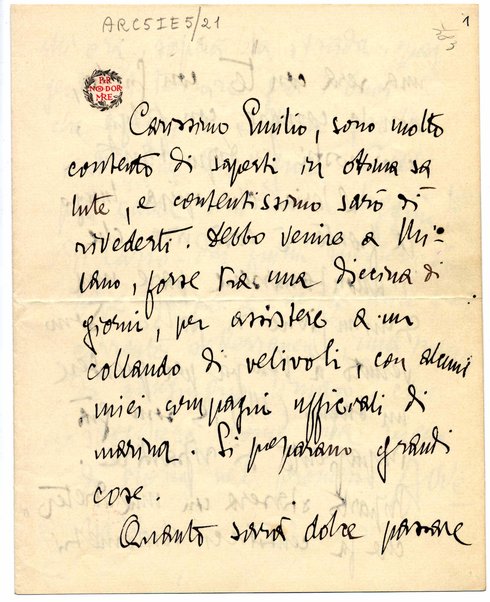 ARC5IE5/21
1
PER
NON DOR
MIRE
Carissimo Emilio, sono molto
contento di saperti in ottima sa
lute, e contentissimo sarò di
rivederti. Debbo venire a Mi-
lano, forse tra una diecina di
giorni, per assistere a un
collaudo di velivoli, con alcuni
miei compagni ufficiali di
marina. Si preparano grandi
cose.
Quanto sarà dolce passare